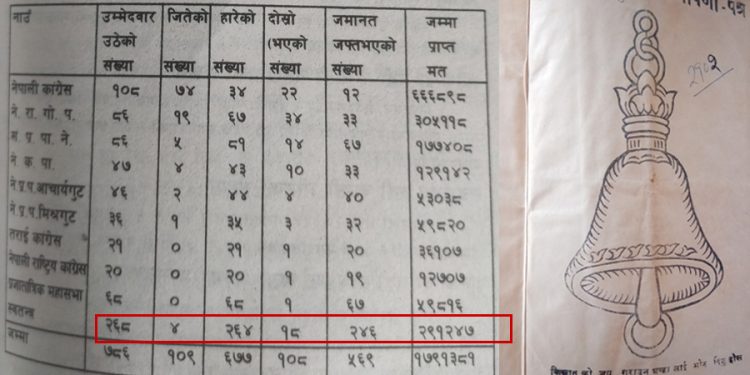 नाउँ उम्मेदवार जितेको हारेको दोस्रो जमानत जम्मा
उठेको (भएको जफ्तभएको प्राप्त
संख्या संख्या संख्या संख्या संख्या मत
नेपाली कांग्रेस १०८ ७४ ३४ २२ १२ ६६६८९८
ने. रा. गो. प. ८६ १९ ६७ ३४ ३३ ३०५११८
सं. प्र. पा. ने. ८६ ५ ८१ १४ ६७ १७७४०८
ने. क. पा. ४७ ४ ४३ १० ३३ १२९१४२
ने.प्र.प.आचार्यगुट ४६ २ ४४ ४ ४० ५३०३८
ने.प्र.प.मिश्रगुट ३६ १ ३५ ३ ३२ ५९८२०
तराई कांग्रेस २१ ० २१ १ २० ३६१०७
नेपाली राष्ट्रिय कांग्रेस २० ० २० १ १९ १२७०७
प्रजातान्त्रिक महासभा ६८ ० ६८ १ ६७ ५९८९६
स्वतन्त्र २६८ ४ २६४ १८ २४६ २९१२४७
जम्मा ७८६ १०९ ६७७ १०८ ५६९ १७९१३८१